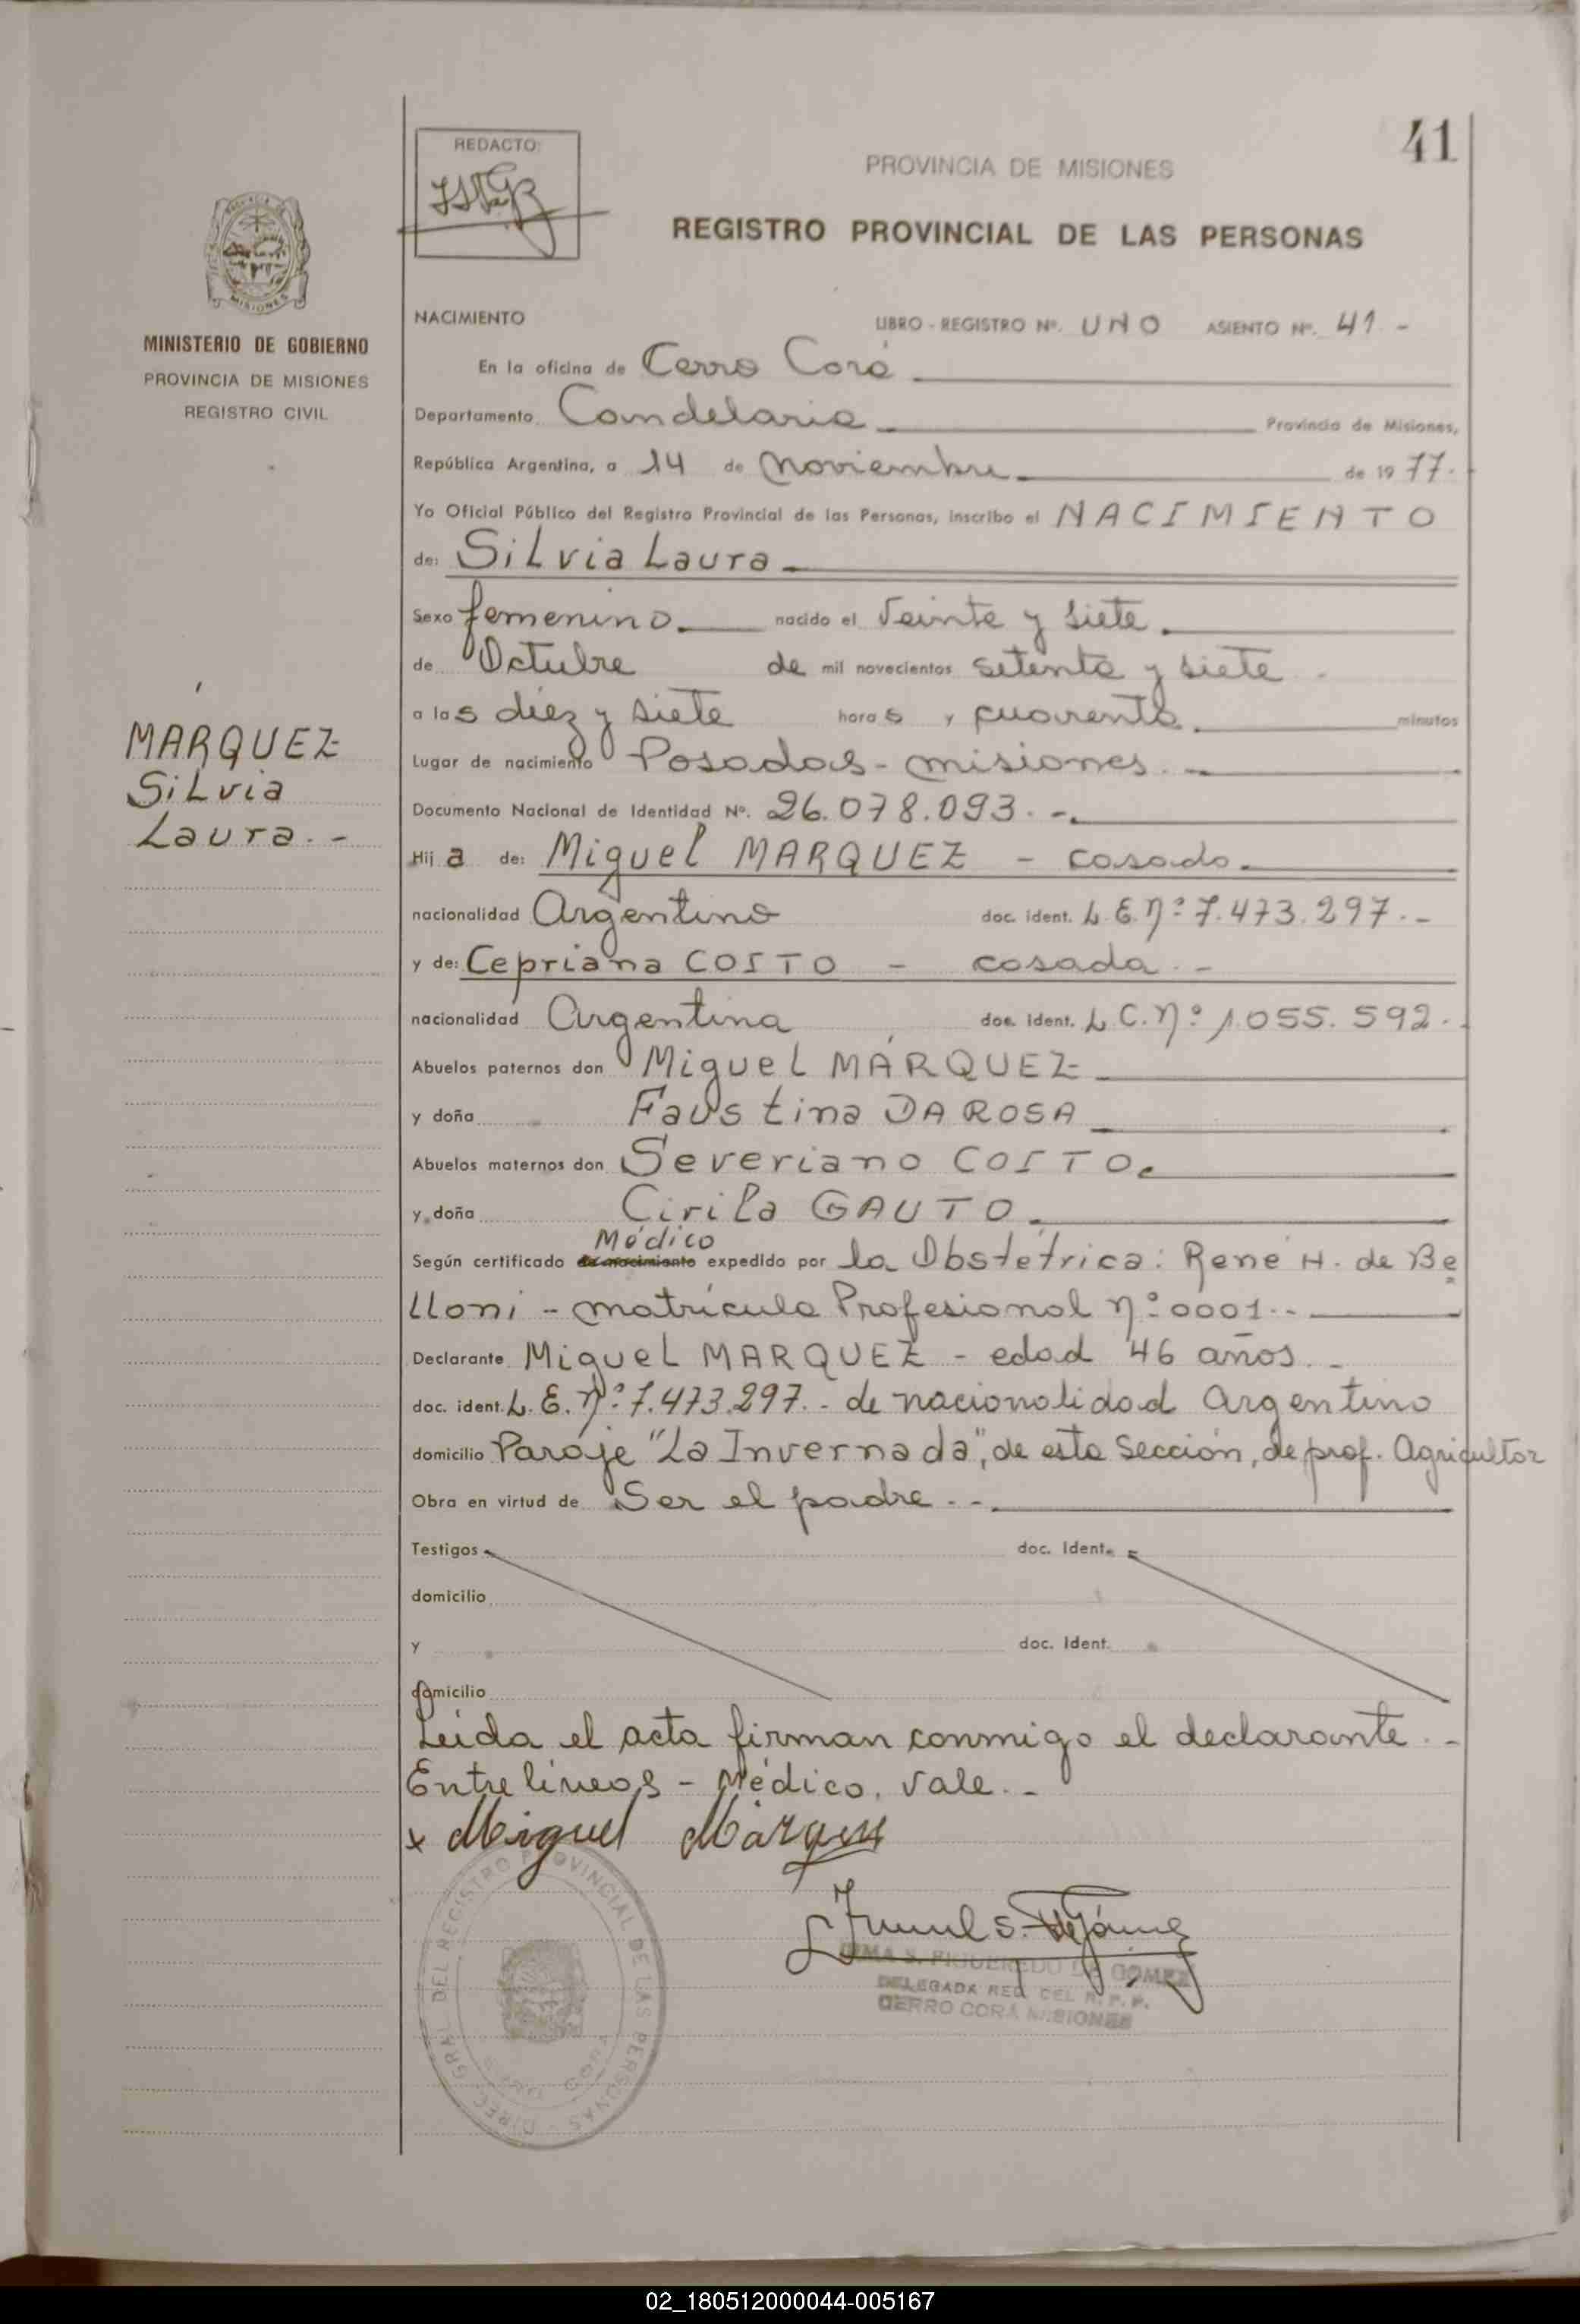 41
REDACTO:
PROVINCIA DE MISIONES
REGISTRO PROVINCIAL DE LAS PERSONAS
MISIONES
MINISTERIO DE GOBIERNO
PROVINCIA DE MISIONES
REGISTRO CIVIL
MARQUEZ
Silvia
Laura. -
NACIMIENTO LIBRO - REGISTRO Nº. UNO ASIENTO Nº. 41 -
En la oficina de Cerro Corá
Departamento Candelaria Provincia de Misiones,
República Argentina, a 14 de Noviembre de 19 77.
Yo Oficial Público del Registro Provincial de las Personas, inscribo el NACIMIENTO
de: Silvia Laura
Sexo femenino nacido el Veinte y siete
de Octubre de mil novecientos setenta y siete
a las diez y siete horas y cuarenta minutos
Lugar de nacimiento Posadas - misiones. -
Documento Nacional de Identidad Nº. 26.078.093. -
Hija de: Miguel MARQUEZ - casado
nacionalidad Argentino doc. ident. L. E. Nº 7.473.297. -
y de: Cepriana COITO - casada. -
nacionalidad Argentina doc. ident. L. C. Nº 1.055.592.
Abuelos paternos don Miguel MÁRQUEZ
y doña Faustina DA ROSA
Abuelos maternos don Severiano COITO
y doña Cirila GAUTO
Médico
Según certificado de nacimiento expedido por la Obstétrica: René H. de Be
lloni - matrícula Profesional Nº 0001. -
Declarante Miguel MARQUEZ - edad 46 años. -
doc. ident. L. E. Nº 7.473.297. - de nacionalidad Argentino
domicilio Paraje "La Invernada", de esta Sección, de prof. Agricultor
Obra en virtud de Ser el padre. -
Testigos doc. Ident.
domicilio
y doc. Ident.
domicilio
Leida el acta firman conmigo el declarante. -
Entre líneas - Médico, vale. -
x Miguel Márquez
IRMA S. FIGUEREDO DE GOMEZ
DELEGADA REG. DEL R. P. P.
CERRO CORA MISIONES
DIREC. GRAL. DEL REGISTRO PROVINCIAL DE LAS PERSONAS
CERRO CORA
02_180512000044-005167